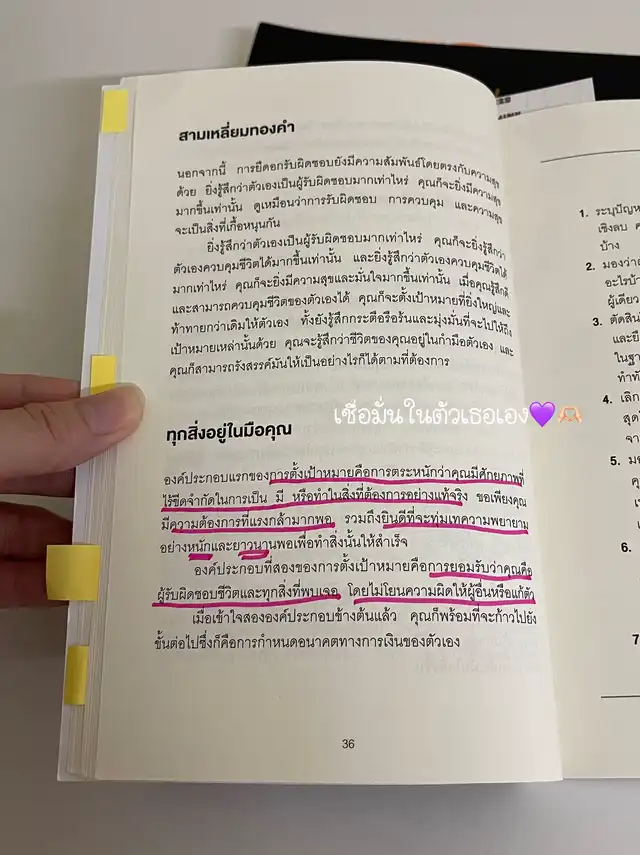 สามเหลี่ยมทองคำ
นอกจากนี้ การยืดอกรับผิดชอบยังมีความสัมพันธ์โดยตรงกับความสุข
ด้วย ยิ่งรู้สึกว่าตัวเองเป็นผู้รับผิดชอบมากเท่าไหร่ คุณก็จะยิ่งมีความสุข
มากขึ้นเท่านั้น ดูเหมือนว่าการรับผิดชอบ การควบคุม และความสุข
จะเป็นสิ่งที่เกื้อหนุนกัน
ยิ่งรู้สึกว่าตัวเองเป็นผู้รับผิดชอบมากเท่าไหร่ คุณก็จะยิ่งรู้สึกว่า
ตัวเองควบคุมชีวิตได้มากขึ้นเท่านั้น และยิ่งรู้สึกว่าตัวเองควบคุมชีวิตได้
มากเท่าไหร่ คุณก็จะยิ่งมีความสุขและมั่นใจมากขึ้นเท่านั้น เมื่อคุณรู้สึกดี
และสามารถควบคุมชีวิตของตัวเองได้ คุณก็จะตั้งเป้าหมายที่ยิ่งใหญ่และ
ท้าทายกว่าเดิมให้ตัวเอง ทั้งยังรู้สึกกระตือรือร้นและมุ่งมั่นที่จะไปให้ถึง
เป้าหมายเหล่านั้นด้วย คุณจะรู้สึกว่าชีวิตของคุณอยู่ในกำมือตัวเอง และ
คุณก็สามารถรังสรรค์มันให้เป็นอย่างไรก็ได้ตามที่ต้องการ
เชื่อมั่นในตัวเธอเอง💜🫶🏻
ทุกสิ่งอยู่ในมือคุณ
องค์ประกอบแรกของการตั้งเป้าหมายคือการตระหนักว่าคุณมีศักยภาพที่
ไร้ขีดจำกัดในการเป็น มี หรือทำในสิ่งที่ต้องการอย่างแท้จริง ขอเพียงคุณ
มีความต้องการที่แรงกล้ามากพอ รวมถึงยินดีที่จะทุ่มเทความพยายาม
อย่างหนักและยาวนานพอเพื่อทำสิ่งนั้นให้สำเร็จ
องค์ประกอบที่สองของการตั้งเป้าหมายคือการยอมรับว่าคุณคือ
ผู้รับผิดชอบชีวิตและทุกสิ่งที่พบเจอ โดยไม่โยนความผิดให้ผู้อื่นหรือแก้ตัว
เมื่อเข้าใจสององค์ประกอบข้างต้นแล้ว คุณก็พร้อมที่จะก้าวไปยัง
ขั้นต่อไปซึ่งก็คือการกำหนดอนาคตทางการเงินของตัวเอง
36
1. ระบุปัญห
เชิงลบ
บ้าง
2. มองว่า
อะไรบ้
ผู้เดียว
3. ตัดสินใ
และยิ
ในฐา
ทำทั
4. เลิก
สุด
จา
5. มอ
คุ
เ
6.
7